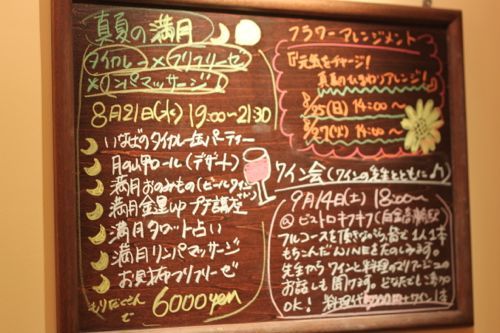 真夏の満月
タイカレー×フリフリーゼ
×リンパマッサージ!
8月21日(水) 19:00~21:30
いなばのタイカレー缶パーティー
月の山ロール(デザート)
満月おのみもの(ビール、ワイン
満月金運upプチ講座
満月タロット占い
満月リンパマッサージ
おみみフリフリーゼ
もりだくさん
で 6000yen
フラワーアレンジメント
『元気をチャージ!
真夏のひまわりアレンジ!
8/25(日) 14:00~
8/27(火) 14:00~
ワイン会(ワインの先生とともに♪)
9月14日(土) 18:00~
@ビストロキフキフ(白金高輪駅
フルコースを頂きながら皆で1人1本
もちこんだWINEをたのしみます。
先生からワインと料理のマリアージュの
お話しも聞けます。どなたでもご参加
OK! 料理代 +ワイン1本